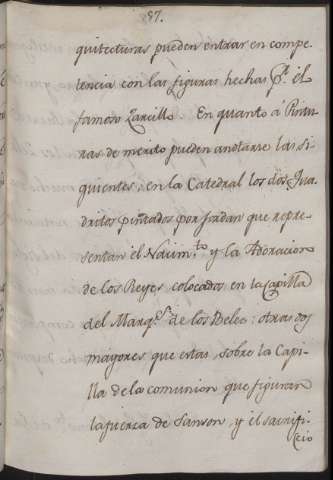 87.
quitecturas pueden entrar en compe-
tencia con las figuras hechas pr. el
famoso Zarcillo. En quanto á Pintu-
ras de merito pueden anotarse las si-
guientes; en la Catedral los dos Qua-
dritos pintados por Jordan que repre-
sentan el Nacim.to y la Adoracion
de los Reyes colocados en la Capilla
del Marq.s de los Velez: otras dos
mayores que estas, sobre la Capi-
lla de la comunion que figuran
la fuerza de Sanson, y el sacrifi-
cio